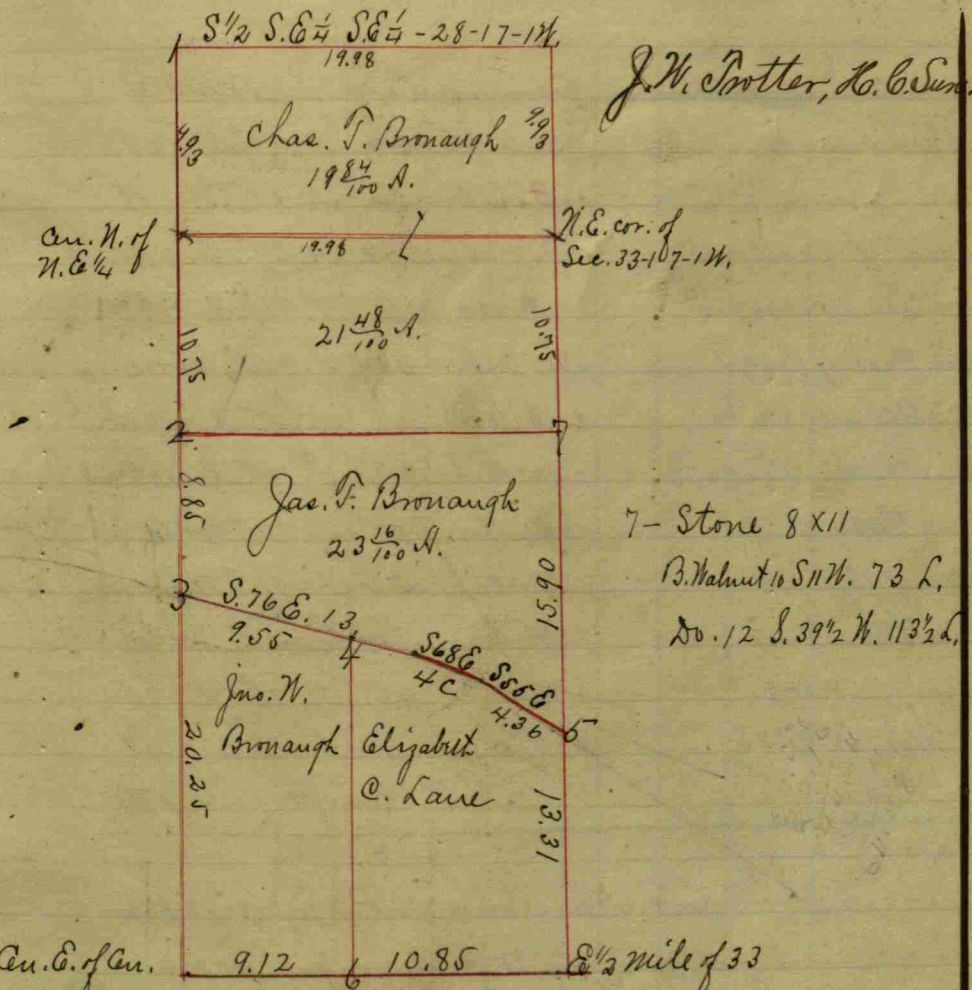 S 1/2 S.E 1/4 S.E 1/4 - 28-17-1W.
19.98
J. W. Trotter, H. C. Surv.
1
9.93
9.93
Chas. T. Bronaugh
19 84/100 A.
Cen. N. of
N.E 1/4
19.98
N.E. cor. of
Sec. 33-17-1W.
10.75
21 48/100 A.
10.75
2
7
8.85
Jas. T. Bronaugh
23 16/100 A.
7 - Stone 8 x 11
B. Walnut 10 S 11 W. 73 L.
Do. 12 S. 39 1/2 W. 113 1/2 L.
15.90
3
S. 76 E. 13
9.55
4
S 68 E
4 C
S 55 E
4.36
5
Jno. W.
Bronaugh
Elizabeth
C. Lane
20.25
13.31
Cen. E. of Cen.
9.12
6
10.85
E 1/2 mile of 33